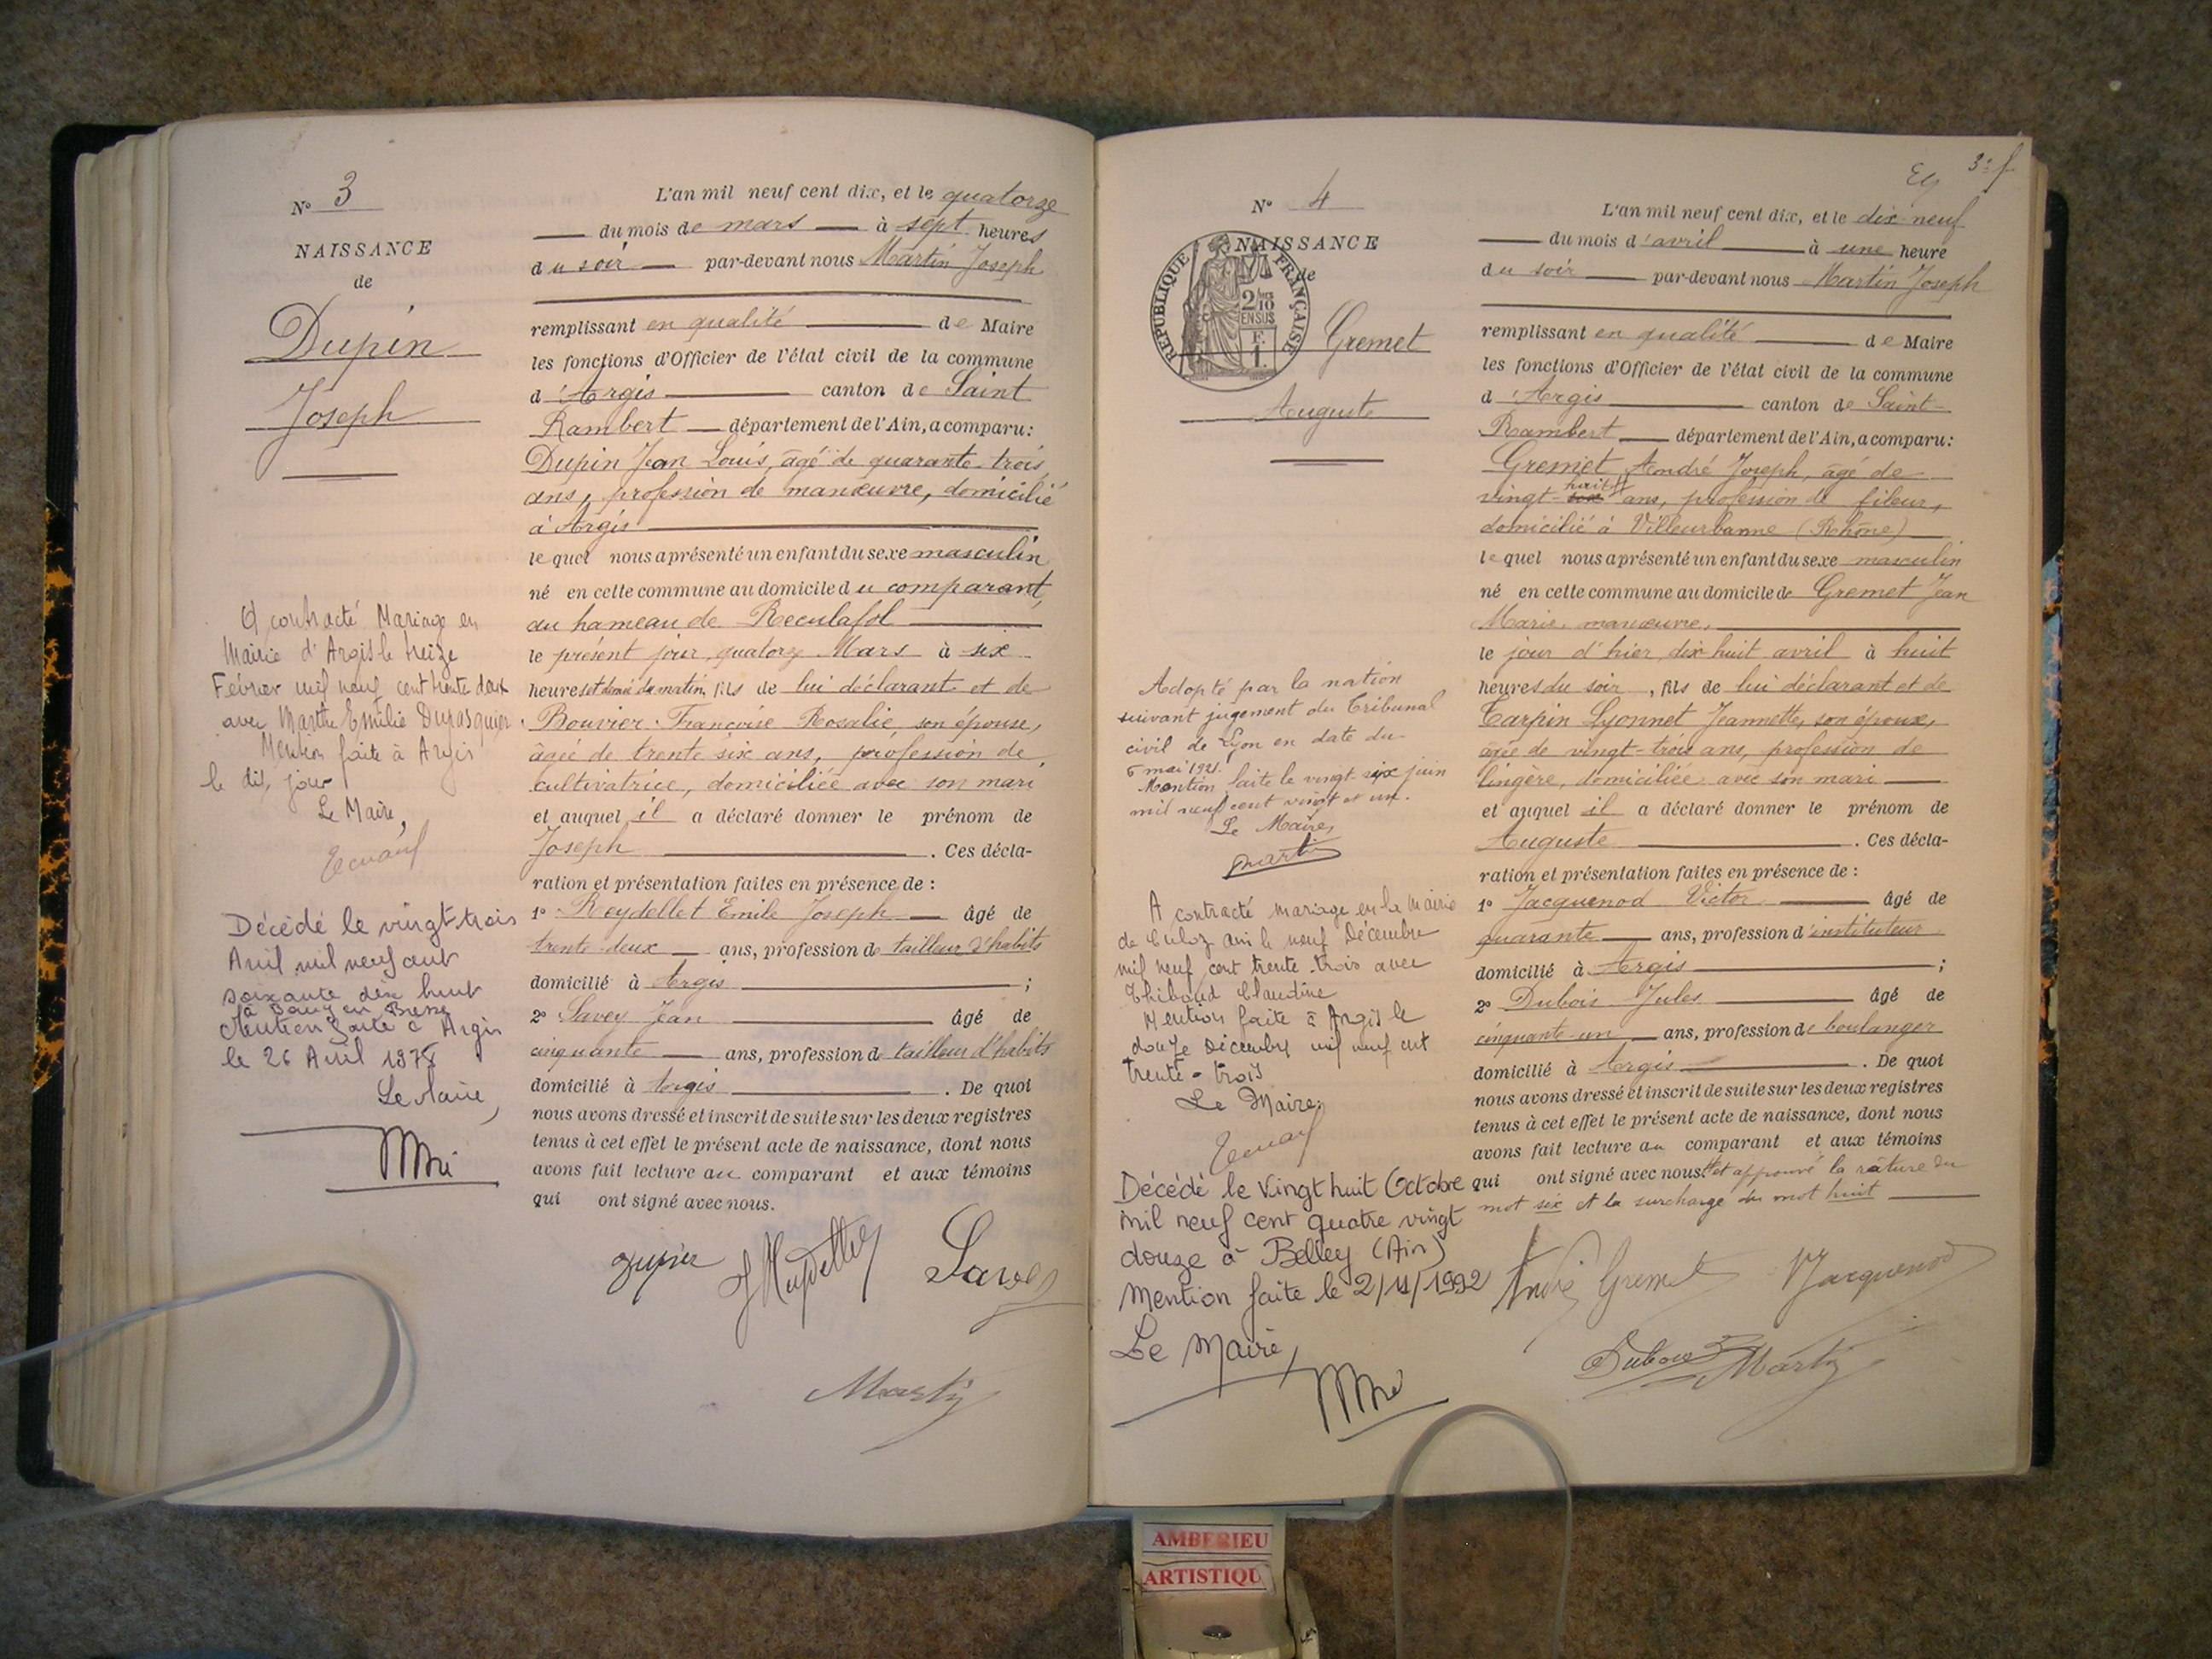 N° 3
NAISSANCE
de
Dupin
Joseph
A contracté Mariage en
Mairie d'Argis le treize
Février mil neuf cent trente deux
avec Marthe Emilie Dupasquier
Mention faite à Argis
le dit jour
Le Maire,
Décédé le vingt-trois
Avril mil neuf cent
soixante dix huit
à Bourg en Bresse
Mention faite à Argis
le 26 Avril 1978
Le Maire,
L'an mil neuf cent dix, et le quatorze
du mois de mars à sept heures
du soir par-devant nous Martin Joseph
remplissant en qualité de Maire
les fonctions d'Officier de l'état civil de la commune
d'Argis canton de Saint
Rambert département de l'Ain, a comparu:
Dupin Jean Louis, âgé de quarante-trois
ans, profession de manœuvre, domicilié
à Argis
lequel nous a présenté un enfant du sexe masculin
né en cette commune au domicile du comparant,
au hameau de Reculafol
le présent jour, quatorze Mars à six
heures et demie du matin, fils de lui déclarant et de
Bouvier Françoise Rosalie, son épouse,
âgée de trente six ans, profession de
cultivatrice, domiciliée avec son mari
et auquel il a déclaré donner le prénom de
Joseph . Ces décla-
ration et présentation faites en présence de :
1° Reydellet Emile Joseph âgé de
trente-deux ans, profession de tailleur d'habits
domicilié à Argis ;
2° Savey Jean âgé de
cinquante ans, profession de tailleur d'habits
domicilié à Argis . De quoi
nous avons dressé et inscrit de suite sur les deux registres
tenus à cet effet le présent acte de naissance, dont nous
avons fait lecture au comparant et aux témoins
qui ont signé avec nous.
Dupin Savey
Martin
3e f
N° 4
NAISSANCE
de
REPUBLIQUE FRANÇAISE
2/10
EN SUS
F.
1.
Gremet
Auguste
Adopté par la nation
suivant jugement du Tribunal
civil de Lyon en date du
6 mai 1921.
Mention faite le vingt six juin
mil neuf cent vingt et un.
Le Maire,
Martin
A contracté mariage en la mairie
de Culoz Ain le neuf Décembre
mil neuf cent trente-trois avec
Thibaud Claudine
Mention faite à Argis le
douze Décembre mil neuf cent
trente-trois
Le Maire,
Décédé le Vingt huit Octobre
mil neuf cent quatre vingt
douze à Belley (Ain)
Mention faite le 2/11/1992
Le Maire,
L'an mil neuf cent dix, et le dix-neuf
du mois d'avril à une heure
du soir par-devant nous Martin Joseph
remplissant en qualité de Maire
les fonctions d'Officier de l'état civil de la commune
d'Argis canton de Saint-
Rambert département de l'Ain, a comparu:
Gremet André Joseph, âgé de
vingt-six huit ans, profession de fileur,
domicilié à Villeurbanne (Rhône)
lequel nous a présenté un enfant du sexe masculin
né en cette commune au domicile de Gremet Jean
Marie, manœuvre,
le jour d'hier dix-huit avril à huit
heures du soir, fils de lui déclarant et de
Tarpin Lyonnet Jeannette, son épouse,
âgée de vingt-trois ans, profession de
lingère, domiciliée avec son mari
et auquel il a déclaré donner le prénom de
Auguste . Ces décla-
ration et présentation faites en présence de :
1° Jacquenod Victor âgé de
quarante ans, profession d'instituteur
domicilié à Argis ;
2° Dubois Jules âgé de
cinquante-un ans, profession de boulanger
domicilié à Argis . De quoi
nous avons dressé et inscrit de suite sur les deux registres
tenus à cet effet le présent acte de naissance, dont nous
avons fait lecture au comparant et aux témoins
qui ont signé avec nous et approuvé la râture du
mot six et la surcharge du mot huit
André Gremet VJacquenod
Dubois Martin
AMBERIEU
ARTISTIQU